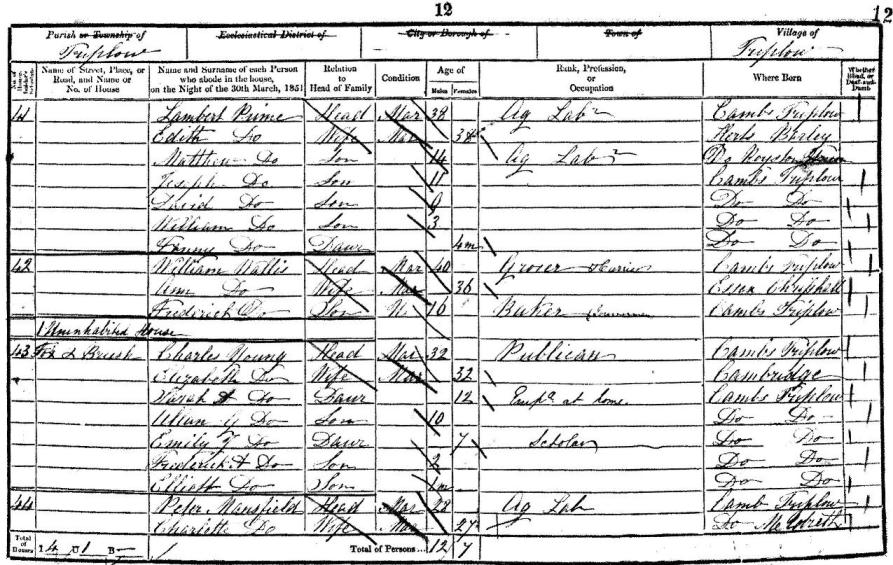 12
12
Parish or Township of
Triplow
Ecclesiastical District of
City or Borough of
Town of
Village of
Triplow
No. of House-holder's Schedule
Name of Street, Place, or Road, and Name or No. of House
Name and Surname of each Person who abode in the house, on the Night of the 30th March, 1851
Relation to Head of Family
Condition
Age of
Males Females
Rank, Profession, or Occupation
Where Born
Whether Blind, or Deaf-and-Dumb
41 Lambert Prime Head Mar 38 Ag Labr Cambs Triplow
Edith Do Wife Mar 38 Herts Barley
Matthew Do Son 14 Ag Labr Do Royston
Joseph Do Son 11 Cambs Triplow
David Do Son 9 Do Do
William Do Son 3 Do Do
Fanny Do Daur 4m Do Do
42 William Wallis Head Mar 40 Grocer Cambs Triplow
Ann Do Wife Mar 36 Essex Chrishall
Frederick Do Son U 16 Baker Cambs Triplow
1 Uninhabited House
43 Fox & Brush Charles Young Head Mar 32 Publican Cambs Triplow
Elizabeth Do Wife Mar 32 Cambridge
Sarah A Do Daur 12 Empd at home Cambs Triplow
Allan Y Do Son 10 Do Do
Emily Y Do Daur 7 Scholar Do Do
Frederick A Do Son 2 Do Do
Elliott Do Son 1m Do Do
44 Peter Mansfield Head Mar 28 Ag Lab Camb Triplow
Charlotte Do Wife Mar 27 Do Meldreth
Total of Houses I 4 U 1 B — Total of Persons... 12 7